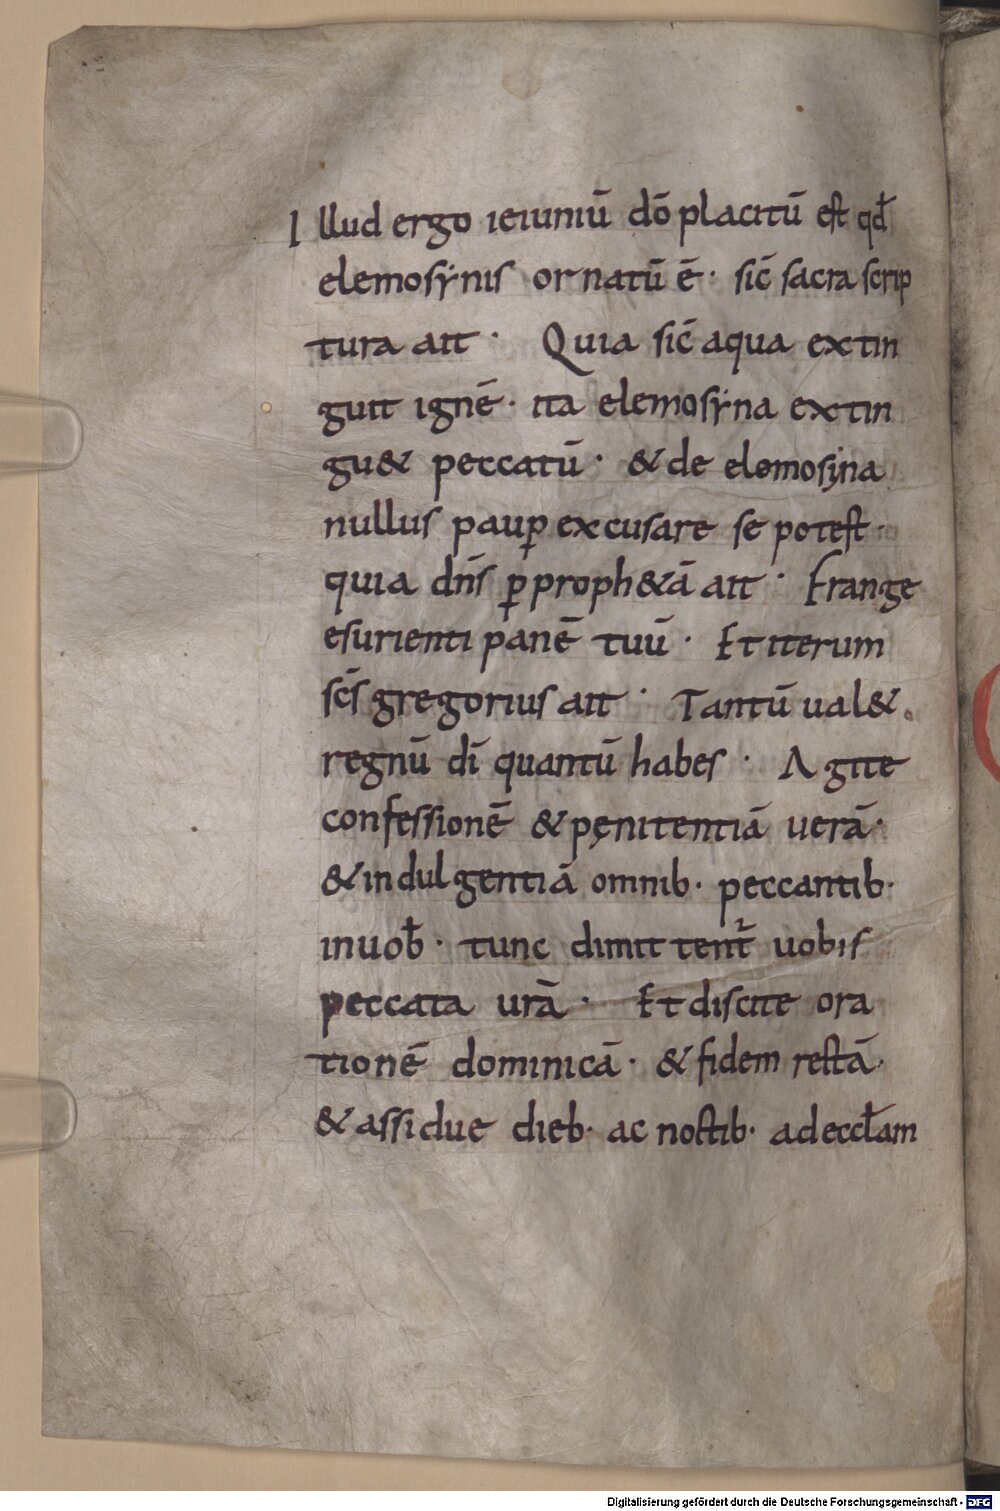 Illud ergo ieiuniū dō placitū est qđ
elemosẏnis ornatū ē· sic̄ sacra scrip
tura ait· Quia sic̄ aqua extin
guit ignē· ita elemosẏna extin
gu& peccatū· & de elemosẏna
nullus paup̱ excusare se potest·
quia dn̄s ꝑ proph&ā ait· Frange
esurienti panē tuū· Et iterum
sc̄s gregorius ait· Tantū ual&
regnū dī quantū habes· Agite
confessionē & pęnitentiā uerā·
& indulgentiā omnib· peccantib·
in uob̄· tunc dimittent᷑ uobis
peccata urā· Et discite ora
tionē dominicā· & fidem rectā·
& assidue dieb· ac noctib· ad eccl̄am
Digitalisierung gefördert durch die Deutsche Forschungsgemeinschaft - DFG